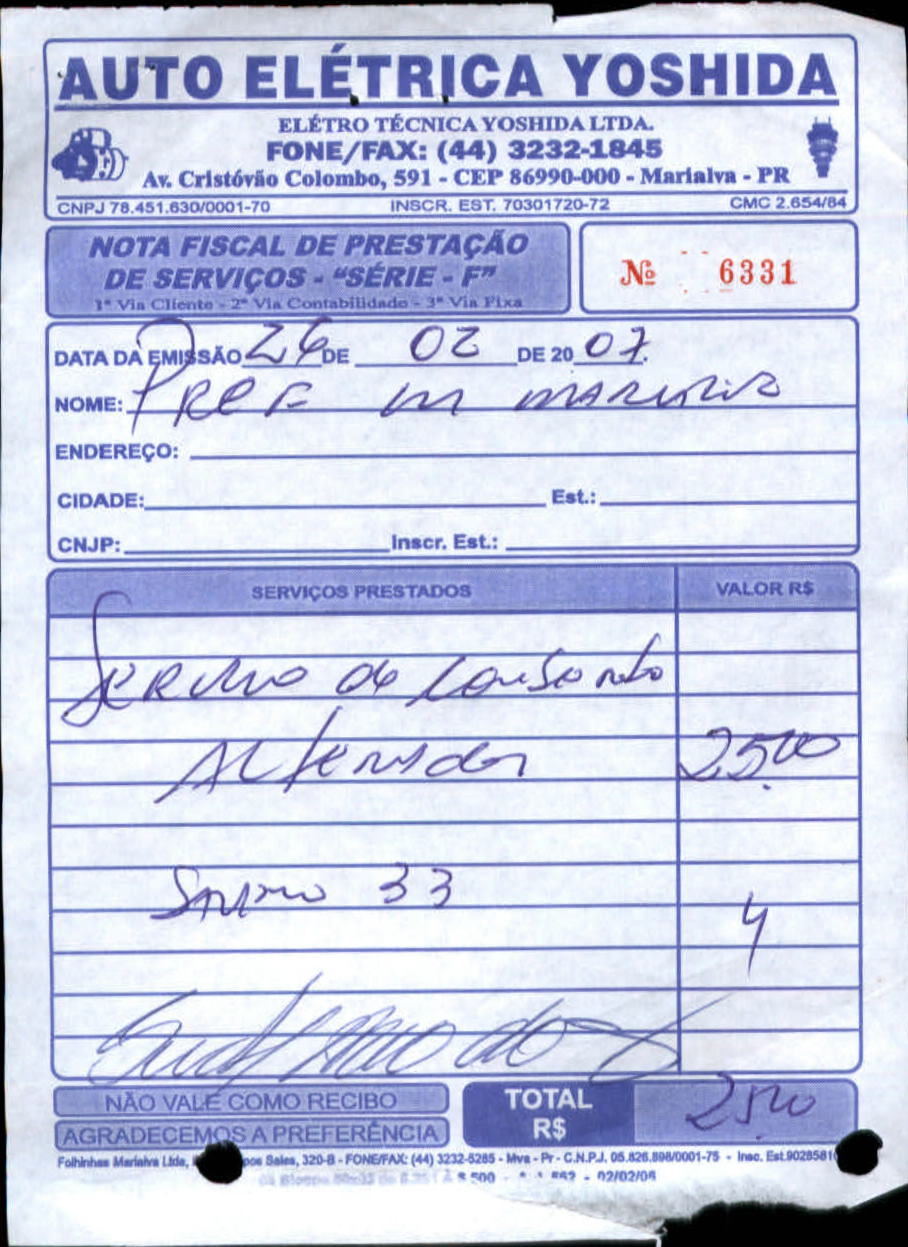 AUTO ELÉTRICA YOSHIDA
ELÉTRO TÉCNICA YOSHIDA LTDA.
FONE/FAX: (44) 3232-1845
Av. Cristóvão Colombo, 591 - CEP 86990-000 - Marialva - PR
CNPJ 78.451.630/0001-70 INSCR. EST. 70301720-72 CMC 2.654/84
NOTA FISCAL DE PRESTAÇÃO
DE SERVIÇOS - "SÉRIE - F"
1ª Via Cliente - 2ª Via Contabilidade - 3ª Via Fixa
Nº 6331
DATA DA EMISSÃO 26 DE 02 DE 2007.
NOME: Pref m
ENDEREÇO:
CIDADE: Est.:
CNJP: Inscr. Est.:
SERVIÇOS PRESTADOS VALOR R$
Servico de
Alternador 2500
33
NÃO VALE COMO RECIBO
AGRADECEMOS A PREFERÊNCIA
TOTAL
R$ 2500
Folhinhas Marialva Ltda, Sales, 320-B - FONE/FAX: (44) 3232-5285 - Mva - Pr - C.N.P.J. 05.826.898/0001-75 - Insc. Est.
02/02/06